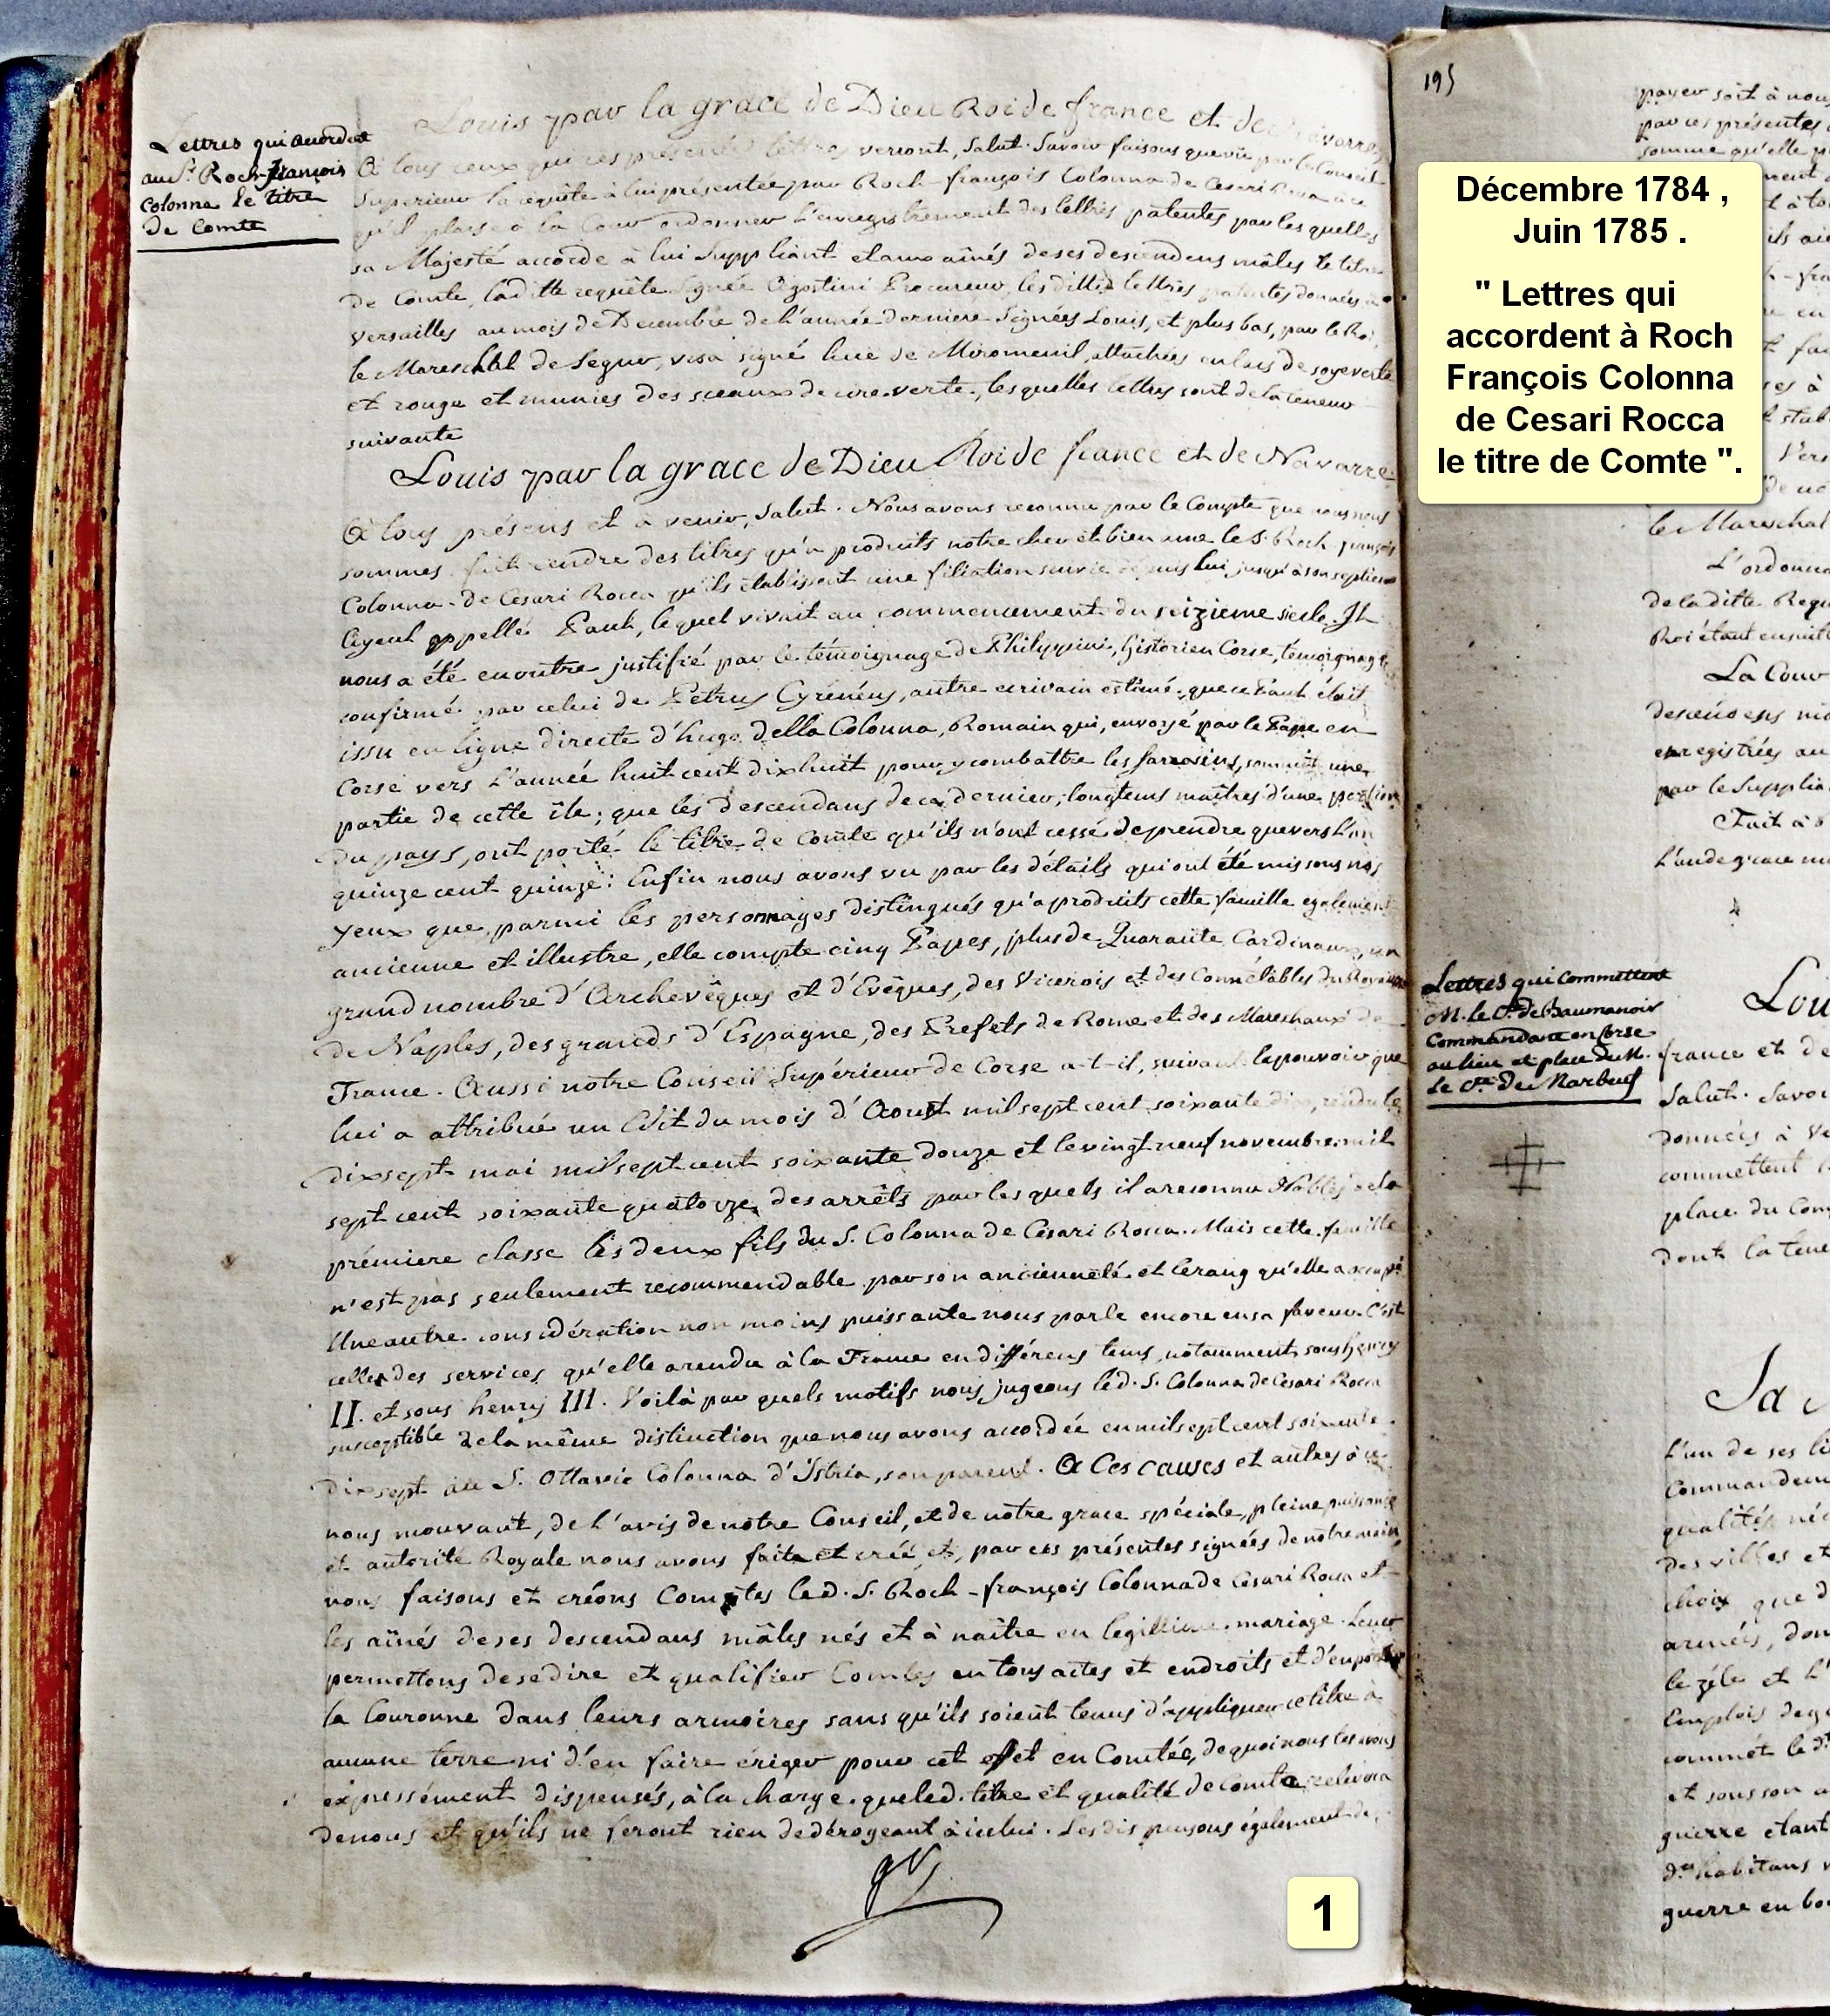 Lettres qui accordent
au S.r Roch-françois
Colonna le titre
de Comte
Louis par la grace de Dieu Roi de france et de Navarre
A tous ceux qui ces présentes lettres verront, Salut. Savoir faisons que vû par le Conseil
Superieur la requête à lui présentée par Roch-françois Colonna de Cesari Rocca à ce
qu'il plaise à la Cour ordonner l'enregistrement des lettres patentes par lesquelles
sa Majesté accorde à lui Suppliant et aux aînés de ses descendens mâles le titre
de Comte, laditte requête signée Agostini Procureur, les dittes lettres patentes données à
Versailles au mois de Decembre de l'année derniere Signées Louis, et plus bas, par le Roi,
le Mareschal de Segur, visa signé hue de Miromenil, attachées en lacs de soye verte
et rouge et munies des sceaux de cire verte, lesquelles lettres sont de la teneur
suivante
Louis par la grace de Dieu Roi de france et de Navarre
A tous présens et a venir, Salut. Nous avons reconnu par le Compte que nous nous
sommes fait rendre des titres qu'a produits notre cher et bien amé le S. Roch françois
Colonna de Cesari Rocca qu'ils établissoit une filiation suivie depuis lui jusqu'à son septieme
Ayeul appellé Paul, lequel vivoit au commencement du seizieme siecle. Il
nous a été en outre justifié par le témoignage de Philippini, historien Corse, témoignage
confirmé par celui de Petrus Cyrénéus, autre ecrivain estimé, que ce Paul étoit
issu en ligne directe d'hugo della Colonna, Romain qui, envoyé par le Pape en
Corse vers l'année huit cent dix huit pour y combattre les Sarrasins, soumit une
partie de cette île; que les descendans de ce dernier, longtems maîtres d'une portion
du pays, ont porté le titre de Comte qu'ils n'ont cessé de prendre que vers l'an
quinze cent quinze: Enfin nous avons vu par les détails qui ont été mis sous nos
yeux que, parmi les personnages distingués qu'a produits cette famille egalement
ancienne et illustre, elle compte cinq Papes, plus de Quarante Cardinaux, un
grand nombre d'Archevêques et d'Evêques, des Vicerois et des Connétables du Royaume
de Naples, des grands d'Espagne, des Prefets de Rome et des Mareshaux de
France. Aussi notre Conseil Supérieur de Corse a-t-il, suivant le pouvoir que
lui a attribué un Edit du mois d'Aoust mil sept cent soixante dix, rendu le
dix sept mai mil sept cent soixante douze et le vingt neuf novembre mil
sept cent soixante quatorze des arrêts par lesquels il a reconnu Nobles de la
prémiere classe les deux fils du S. Colonna de Cesari Rocca. Mais cette famille
n'est pas seulement recommendable par son ancienneté et le rang qu'elle a occupé
Une autre considération non moins puissante nous parle encore en sa faveur. C'est
celle des services qu'elle a rendu à la France en différens tems, notamment sous henry
II. et sous henry III. Voilà par quels motifs nous jugeons led. S. Colonna de Cesari Rocca
susceptible de la même distinction que nous avons accordée en mil sept cent soixante
dix sept au S. Ottavio Colonna d'Istria, son parent. A Ces causes et autres à ce
nous mouvant, de l'avis de notre Conseil, et de notre grace spéciale, pleine puissance
et autorité Royale nous avons fait et créé et, par ces présentes signées de notre main,
nous faisons et créons Comtes led. S. Roch-françois Colonna de Cesari Rocca et
les aînés de ses descendans mâles nés et à naître en legitime mariage. Leur
permettons de se dire et qualifier Comtes en tous actes et endroits et d'en porter
la Couronne dans leurs armoires sans qu'ils soient tenus d'appliquer ce titre à
aucune terre ni d'en faire ériger pour cet effet en Comtée, de quoi nous les avons
expressément dispensés, à la charge que led. titre et qualité de Comte relevera
de nous et qu'ils ne feront rien de dérogeant à icelui. Les dispensons également de
1
195
payer soit à nous
par ces présentes
somme qu'elle
Décembre 1784 ,
Juin 1785 .
" Lettres qui
accordent à Roch
François Colonna
de Cesari Rocca
le titre de Comte ".
le Mareschal
L'ordonna
de la ditte Requ
Roi étant ensuite
La Cour
enregistrées au
par le Supplia
Fait à B
L'an de grace mi
Lettres qui Commettent
M. le C.te de Beaumanoir
Commandant en Corse
au lieu et place de M.
le C.te de Marbeuf
Lou
france et de
Salut. Savoi
données à Ve
commettent
place du Com
dont la tene
Sa
L'un de ses li
Commandeu
qualités néc
des villes et
choix que d
armées, don
le zéle et l'
Emplois de gu
commet le d.
et sous son a
guerre étant
d.es habitans
guerre en bo